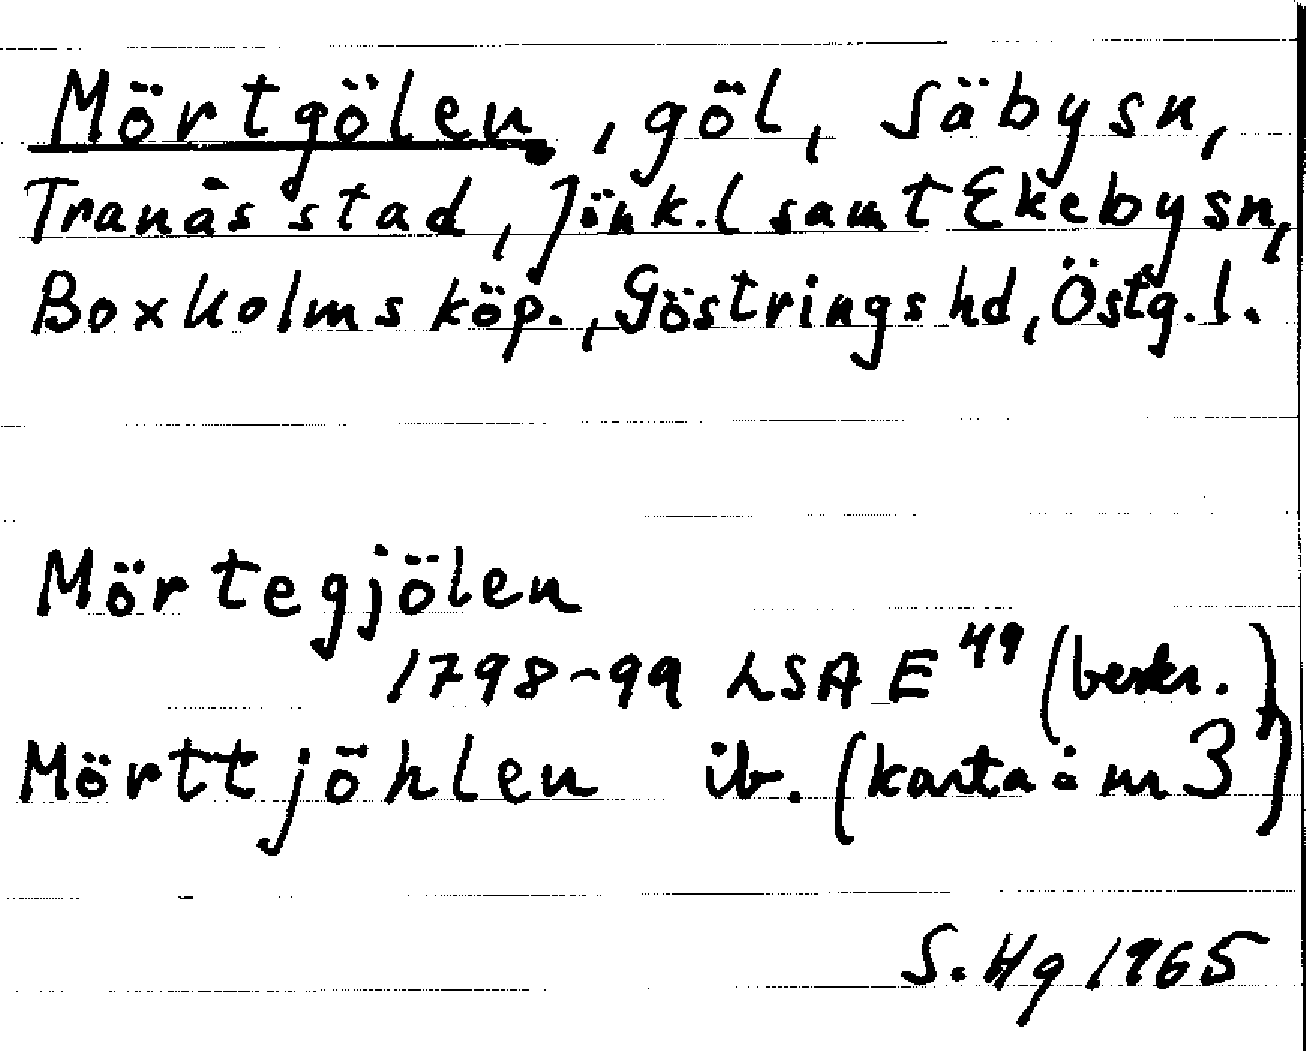 Mörtgölen, göl, Säby sn,
Tranås stad, Jönk.l samt Ekeby sn,
Boxholms köp., Göstrings hd, Östg.l.
Mörtegjölen
1798-99 LSA E 49 (beskr.)
Mörttjöhlen ib. (karta: nr 3)
S. Hg 1965